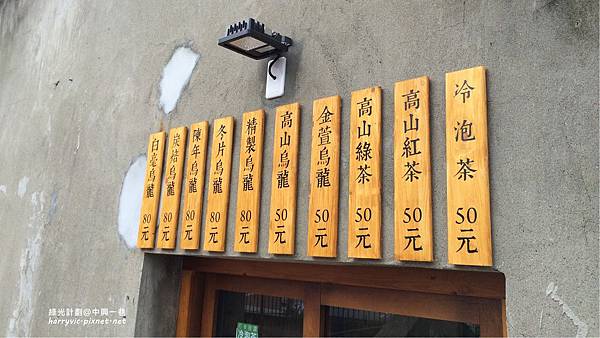 冷泡茶 50元
高山紅茶 50元
高山綠茶 50元
金萱烏龍 50元
高山烏龍 50元
精製烏龍 80元
冬片烏龍 80元
陳年烏龍 80元
炭焙烏龍 80元
白毫烏龍 80元
冷泡茶
綠光計劃@中興一巷
harryvic-pixnet-net